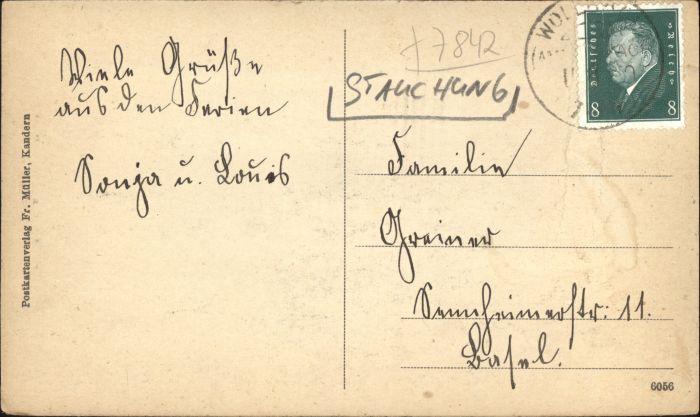 Viele Grüße
aus den Ferien
Sonja u. Louis
Postkartenverlag Fr. Müller, Kandern
7842
STAUCHUNG
Deutsches Reich
8 8
Familie
Greiner
Sennheimerstr: 11.
Basel.
6056